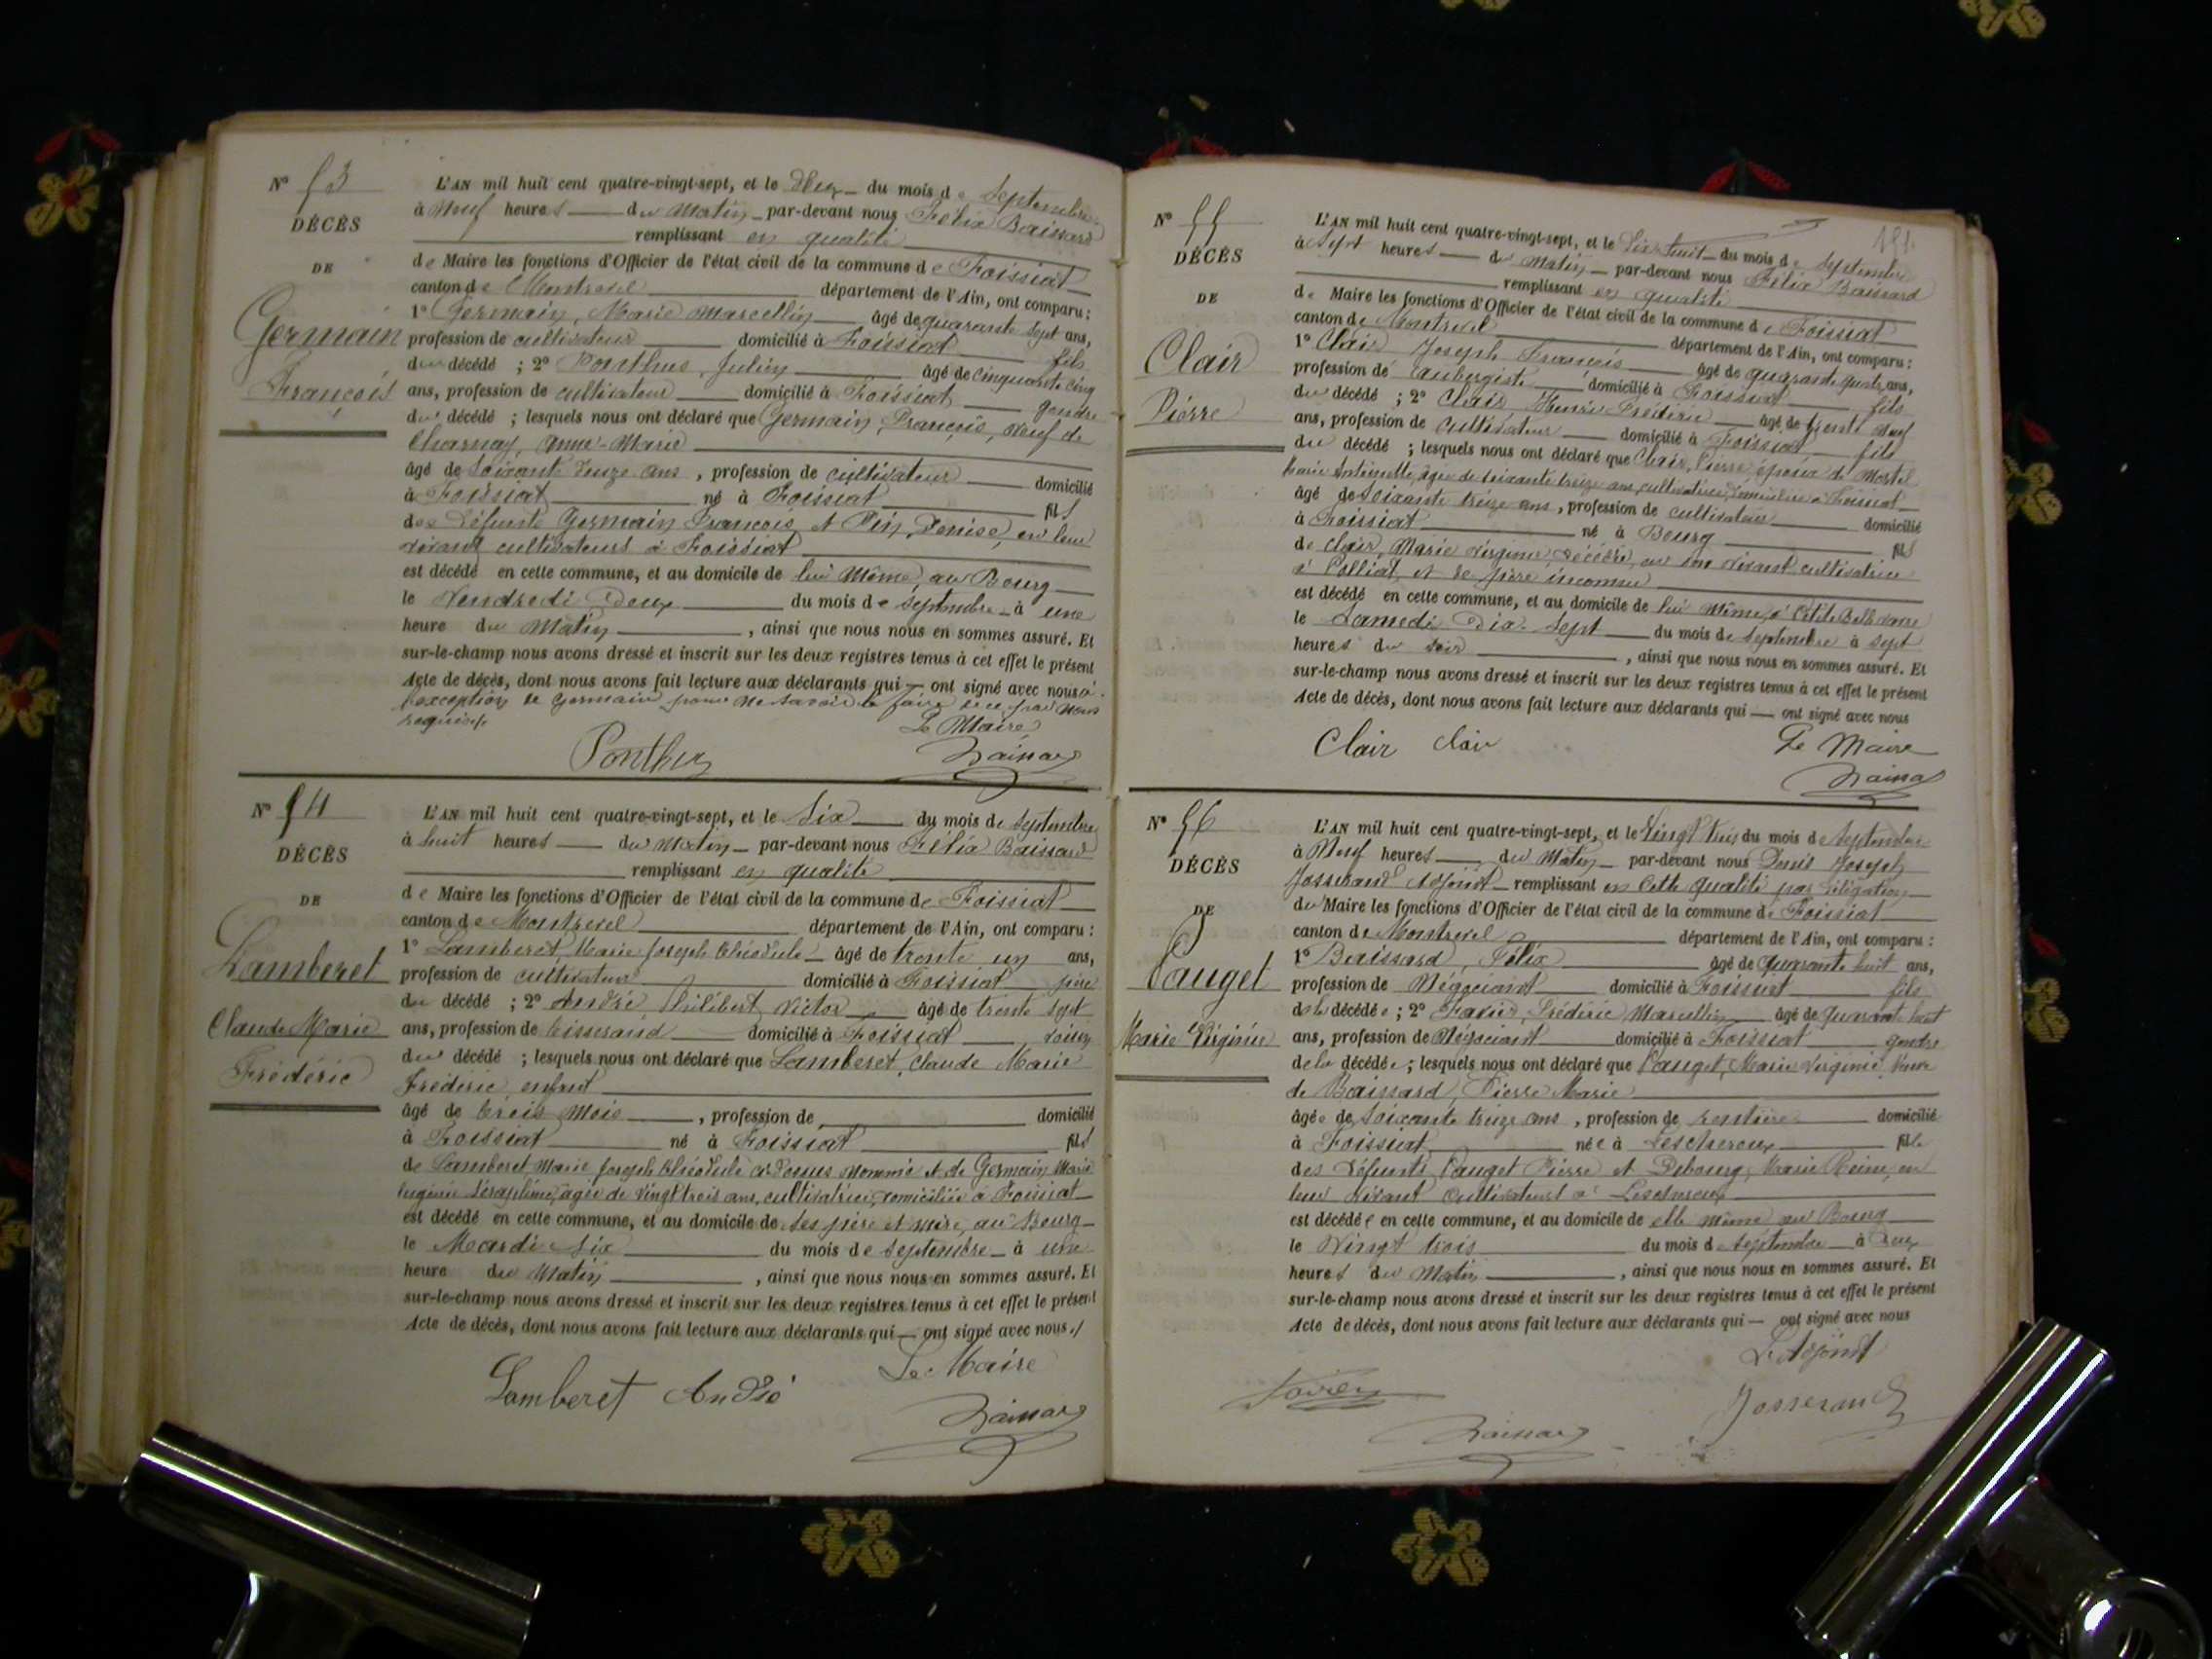 N° 53
DÉCÈS
DE
Germain
François
L'AN mil huit cent quatre-vingt-sept, et le deux du mois de Septembre
à Neuf heures du Matin par-devant nous Félix Baissard
remplissant en qualité
de Maire les fonctions d'Officier de l'état civil de la commune de Foissiat
canton de Montrevel département de l'Ain, ont comparu :
1° Germain, Marie Marcellin âgé de quarante sept ans,
profession de cultivateur domicilié à Foissiat fils
du décédé ; 2° Ponthus, Julien âgé de cinquante cinq
ans, profession de cultivateur domicilié à Foissiat gendre
du décédé ; lesquels nous ont déclaré que Germain, François, veuf de
Charnay, Anne-Marie
âgé de soixante ans, profession de cultivateur domicilié
à Foissiat né à Foissiat fils
des défunts Germain François et Pin, Denise, en leur
vivant cultivateurs à Foissiat
est décédé en cette commune, et au domicile de lui même, au Bourg
le Vendredi Deux du mois de Septembre à une
heure du Matin, ainsi que nous nous en sommes assuré. Et
sur-le-champ nous avons dressé et inscrit sur les deux registres tenus à cet effet le présent
Acte de décès, dont nous avons fait lecture aux déclarants qui — ont signé avec nous à
l'exception de Germain pour ne savoir le faire de ce par nous
requis
Le Maire
Ponthus
Baissard
N° 54
DÉCÈS
DE
Lamberet
Claude Marie
Frédéric
L'AN mil huit cent quatre-vingt-sept, et le Six du mois de Septembre
à huit heures du Matin par-devant nous Félix Baissard
remplissant en qualité
de Maire les fonctions d'Officier de l'état civil de la commune de Foissiat
canton de Montrevel département de l'Ain, ont comparu :
1° Lamberet, Marie Joseph Théodule âgé de trente un ans,
profession de cultivateur domicilié à Foissiat père
du décédé ; 2° André, Philibert Victor âgé de trente sept
ans, profession de tisserand domicilié à Foissiat voisin
du décédé ; lesquels nous ont déclaré que Lamberet, Claude Marie
Frédéric, enfant
âgé de trois mois, profession de domicilié
à Foissiat né à Foissiat fils
de Lamberet Marie Joseph Théodule ci-dessus nommé et de Germain Marie
Eugénie Séraphine, âgée de vingt trois ans, cultivatrice, domiciliée à Foissiat
est décédé en cette commune, et au domicile de ses père et mère, au Bourg
le Mardi six du mois de Septembre à une
heure du Matin, ainsi que nous nous en sommes assuré. Et
sur-le-champ nous avons dressé et inscrit sur les deux registres tenus à cet effet le présent
Acte de décès, dont nous avons fait lecture aux déclarants qui — ont signé avec nous ./
Le Maire
Lamberet André
Baissard
N° 55
DÉCÈS
DE
Clair
Pierre
L'AN mil huit cent quatre-vingt-sept, et le Dix huit du mois de Septembre
à Sept heures du Matin par-devant nous Félix Baissard
remplissant en qualité
de Maire les fonctions d'Officier de l'état civil de la commune de Foissiat
canton de Montrevel département de l'Ain, ont comparu :
1° Clair Joseph François âgé de quarante quatre ans,
profession de Aubergiste domicilié à Foissiat fils
du décédé ; 2° Clair Henri Frédéric âgé de trente neuf
ans, profession de cultivateur domicilié à Foissiat fils
du décédé ; lesquels nous ont déclaré que Clair, Pierre époux de Mortel
Marie Antoinette, âgée de soixante treize ans, cultivatrice, domiciliée à Foissiat
âgé de Soixante treize ans, profession de cultivateur domicilié
à Foissiat né à Bourg fils
de Clair, Marie Virginie, décédée, en son vivant cultivatrice
à Polliat, et de père inconnu
est décédé en cette commune, et au domicile de lui même, à Petite
le Samedi Dix-Sept du mois de Septembre à sept
heures du soir, ainsi que nous nous en sommes assuré. Et
sur-le-champ nous avons dressé et inscrit sur les deux registres tenus à cet effet le présent
Acte de décès, dont nous avons fait lecture aux déclarants qui — ont signé avec nous
Clair clair Le Maire
Baissard
N° 56
DÉCÈS
DE
Pauget
Marie Virginie
L'AN mil huit cent quatre-vingt-sept, et le Vingt trois du mois de Septembre
à Neuf heures du Matin par-devant nous Denis Joseph
Josserand Adjoint remplissant en cette qualité par délégation
du Maire les fonctions d'Officier de l'état civil de la commune de Foissiat
canton de Montrevel département de l'Ain, ont comparu :
1° Baissard, Félix âgé de quarante huit ans,
profession de Négociant domicilié à Foissiat fils
de la décédée ; 2° Favier, Frédéric Marcellin âgé de quarante huit
ans, profession de Négociant domicilié à Foissiat gendre
de la décédée ; lesquels nous ont déclaré que Pauget, Marie Virginie, Veuve
de Baissard, Pierre Marie
âgée de Soixante treize ans, profession de rentière domicilié
à Foissiat née à Lescheroux fille
des défunts Pauget Pierre et Debourg, Marie Reine, en
leur vivant cultivateurs à Lescheroux
est décédée en cette commune, et au domicile de elle même au Bourg
le Vingt trois du mois de Septembre à Deux
heures du Matin, ainsi que nous nous en sommes assuré. Et
sur-le-champ nous avons dressé et inscrit sur les deux registres tenus à cet effet le présent
Acte de décès, dont nous avons fait lecture aux déclarants qui — ont signé avec nous
L'Adjoint
Favier
Baissard
Josserand